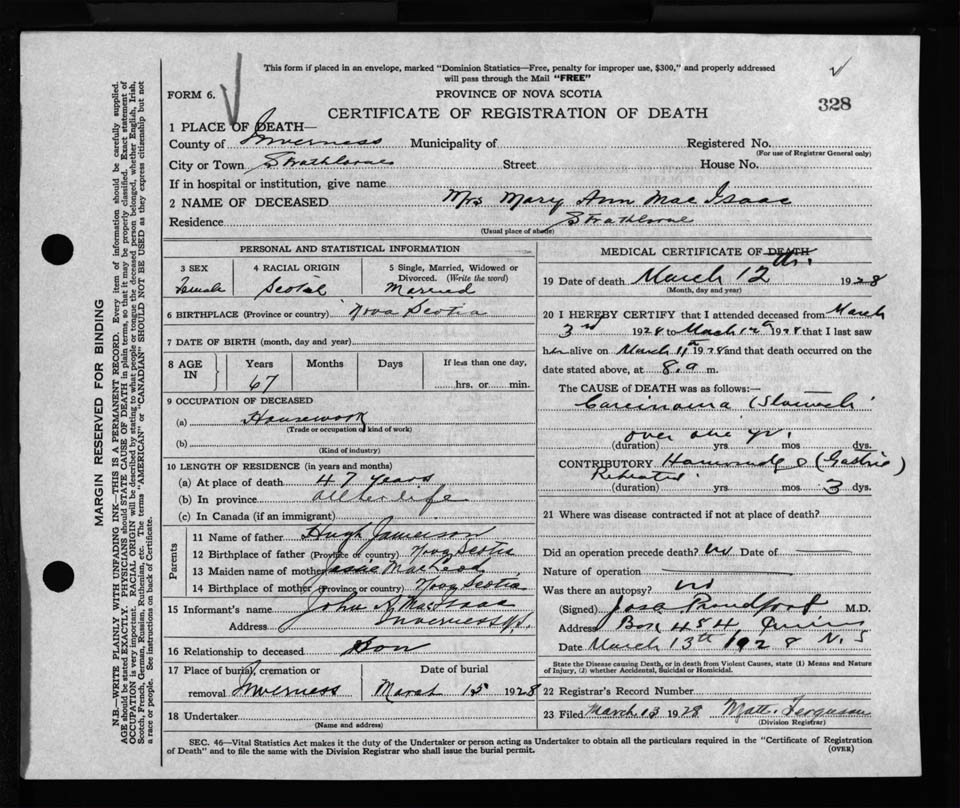 This form if placed in an envelope, marked "Dominion Statistics—Free, penalty for improper use, $300," and properly addressed
will pass through the Mail "FREE"
FORM 6.
PROVINCE OF NOVA SCOTIA
328
CERTIFICATE OF REGISTRATION OF DEATH
1 PLACE OF DEATH—
County of Inverness Municipality of Registered No.
(For use of Registrar General only)
City or Town Strathlorne Street House No.
If in hospital or institution, give name
2 NAME OF DECEASED Mrs Mary Ann Mac Isaac
Residence Strathlorne
(Usual place of abode)
PERSONAL AND STATISTICAL INFORMATION
3 SEX 4 RACIAL ORIGIN 5 Single, Married, Widowed or
Divorced. (Write the word)
Female Scotch Married
6 BIRTHPLACE (Province or country) Nova Scotia
7 DATE OF BIRTH (month, day and year)
8 AGE IN Years Months Days If less than one day,
67 hrs. or min.
9 OCCUPATION OF DECEASED
(a) Housework
(Trade or occupation of kind of work)
(b)
(Kind of industry)
10 LENGTH OF RESIDENCE (in years and months)
(a) At place of death 47 years
(b) In province all her life
(c) In Canada (if an immigrant)
Parents
11 Name of father Hugh Jamieson
12 Birthplace of father (Province or country) Nova Scotia
13 Maiden name of mother Jessie MacLeod
14 Birthplace of mother (Province or country) Nova Scotia
15 Informant's name John A MacIsaac
Address Inverness
16 Relationship to deceased Son
17 Place of burial, cremation or Date of burial
removal Inverness March 15 1928
18 Undertaker
(Name and address)
MEDICAL CERTIFICATE OF DEATH
19 Date of death March 12 th. 1928
(Month, day and year)
20 I HEREBY CERTIFY that I attended deceased from March
3rd 1928 to March 12th 1928 that I last saw
her alive on March 11th 1928 and that death occurred on the
date stated above, at 8.a m.
The CAUSE of DEATH was as follows:—
Carcinoma (Stomach
over one yr.
(duration) yrs mos dys.
CONTRIBUTORY (Gastric)
Repeated
(duration) yrs mos 3 dys.
21 Where was disease contracted if not at place of death?
Did an operation precede death? no Date of
Nature of operation
Was there an autopsy? no
(Signed) Proudfoot M.D.
Address Box 454 N.S
Date March 13th 1928
State the Disease causing Death, or in death from Violent Causes, state (1) Means and Nature
of Injury, (2) whether Accidental, Suicidal or Homicidal.
22 Registrar's Record Number
23 Filed March 13 1928 Matt. Ferguson
(Division Registrar)
SEC. 46—Vital Statistics Act makes it the duty of the Undertaker or person acting as Undertaker to obtain all the particulars required in the "Certificate of Registration
of Death" and to file the same with the Division Registrar who shall issue the burial permit. (OVER)
MARGIN RESERVED FOR BINDING
N.B.—WRITE PLAINLY WITH UNFADING INK—THIS IS A PERMANENT RECORD. Every item of information should be carefully supplied.
AGE should be stated EXACTLY. PHYSICIANS should STATE CAUSE OF DEATH in plain terms, so that it may be properly classified. Exact statement of
OCCUPATION is very important. RACIAL ORIGIN will be described by stating to what people or tongue the deceased person belonged, whether English, Irish,
Scotch, French, German, Russian, Ruthenian, etc. The terms "AMERICAN" or "CANADIAN" SHOULD NOT BE USED as they express citizenship but not
a race or people. See instructions on back of Certificate.